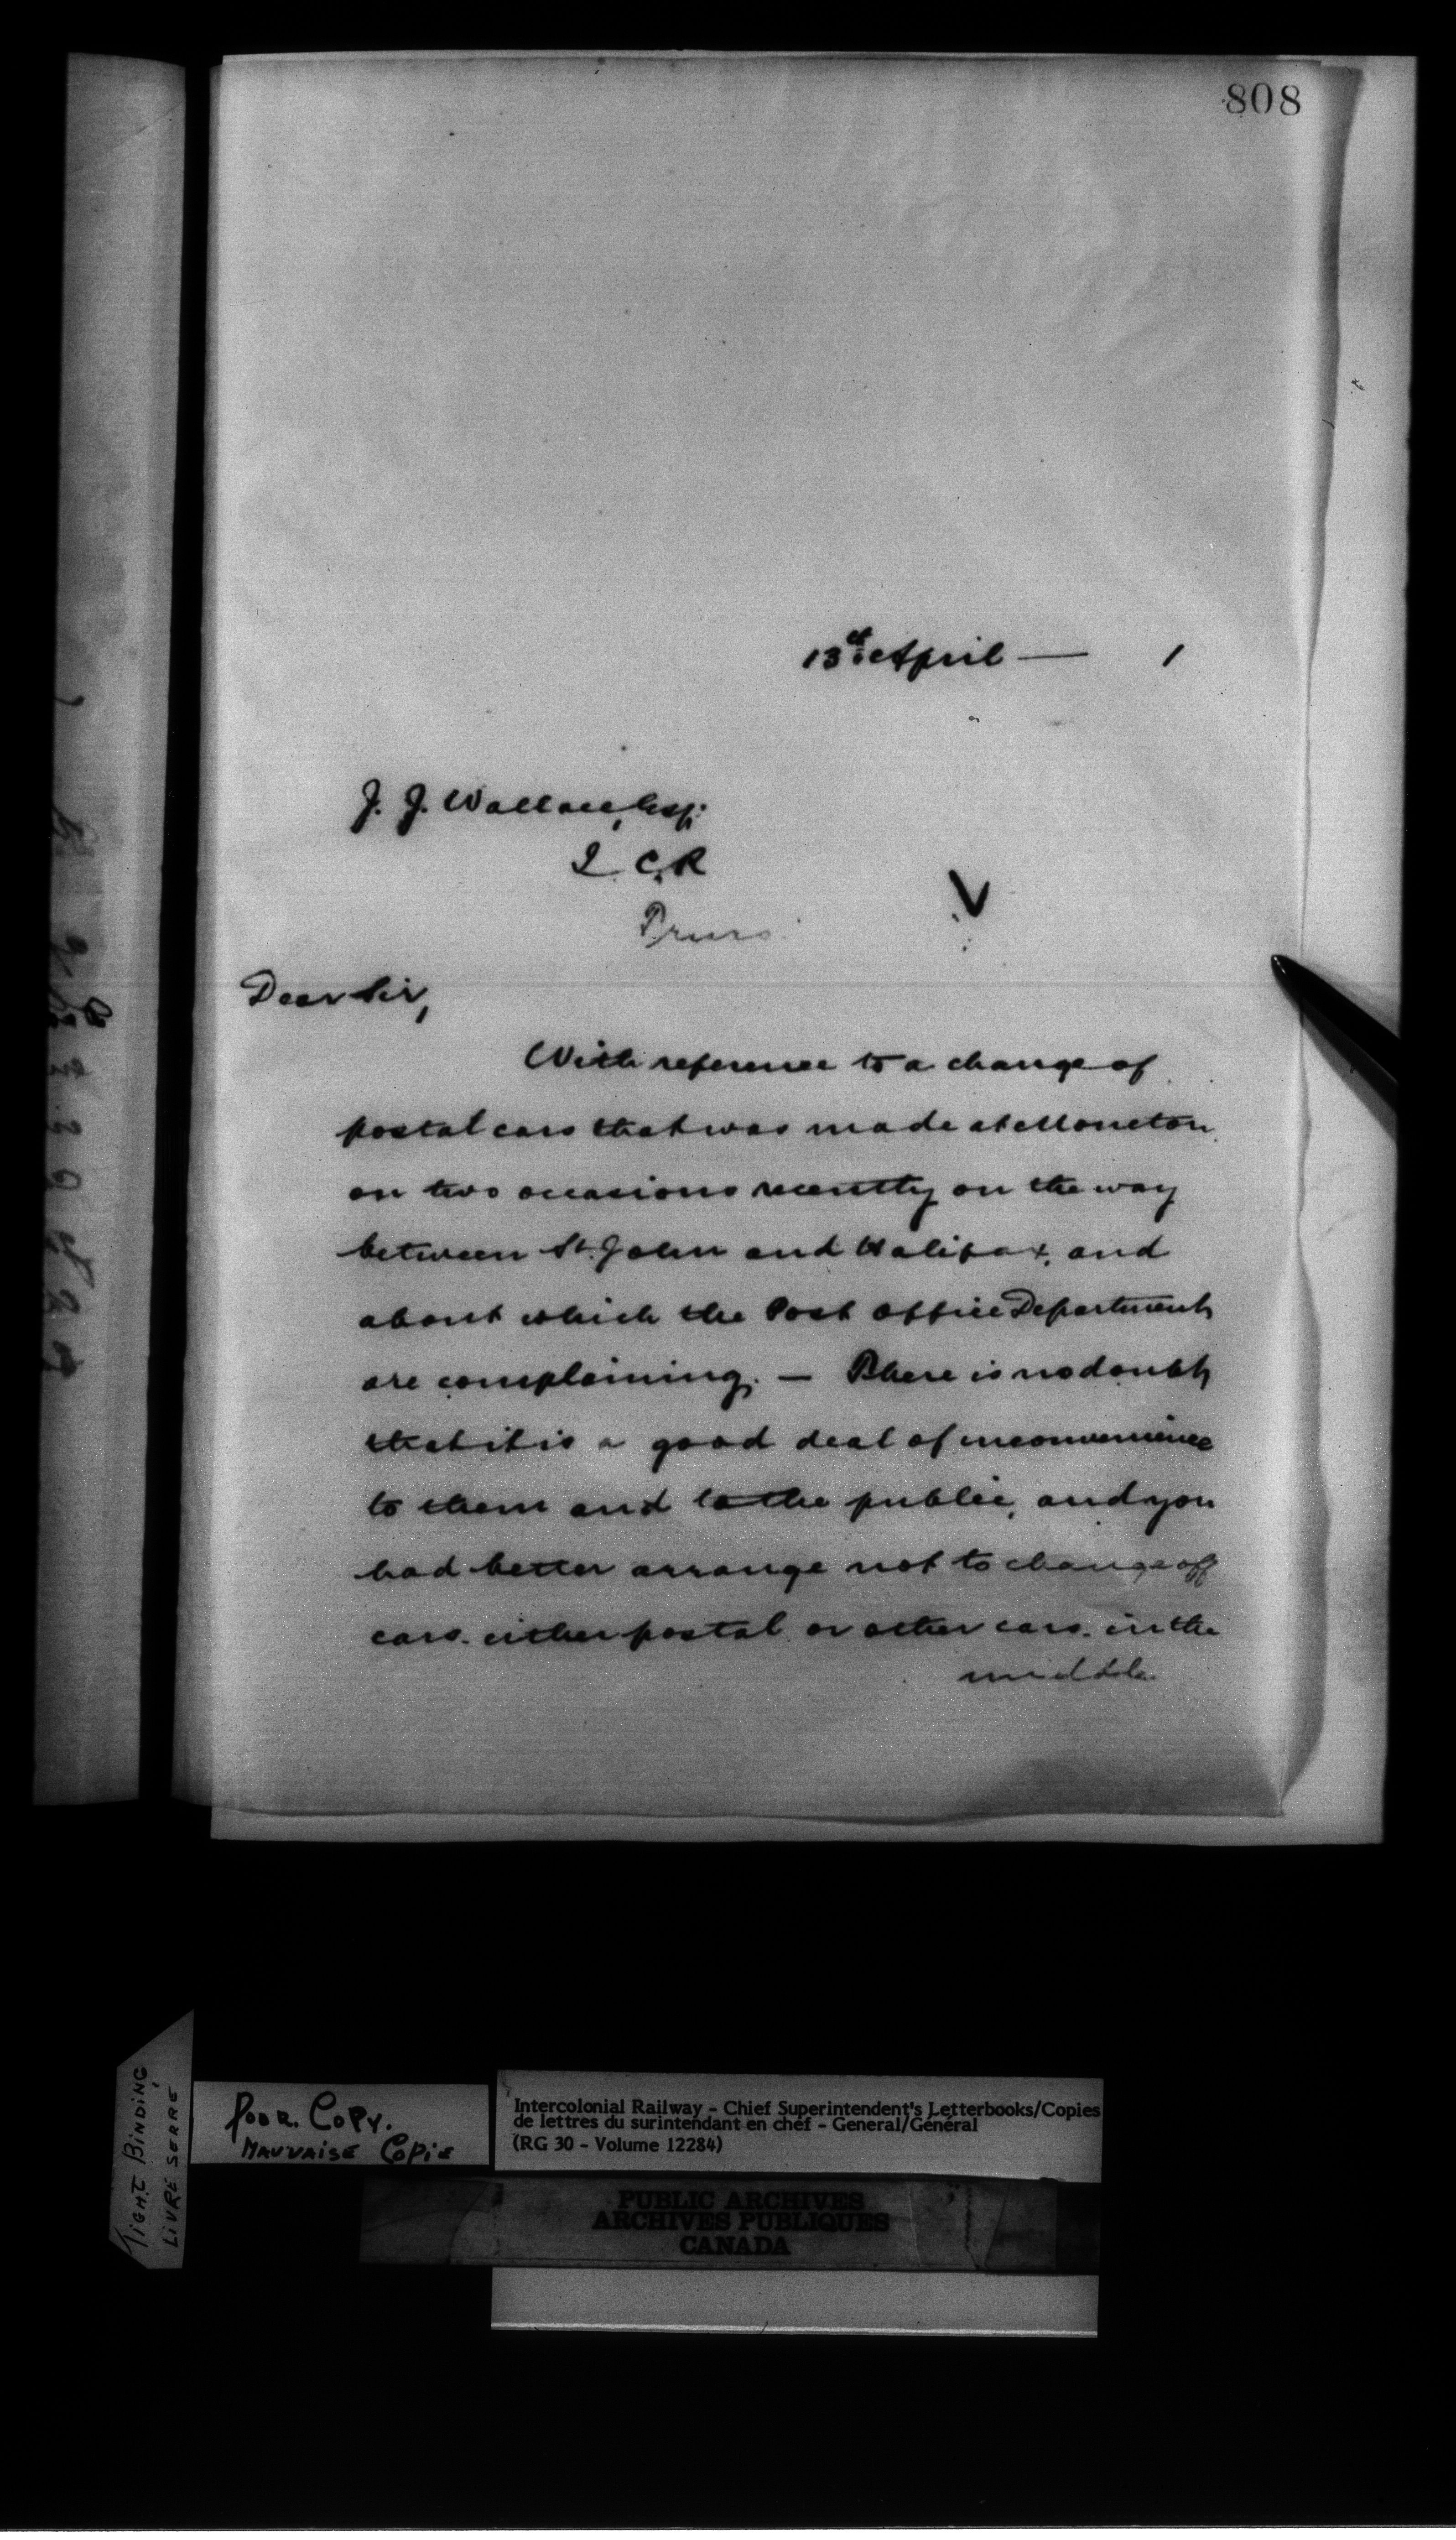 808
13th April — 1
J. J. Wallace, Esq:
I. C. R
Truro.
Dear Sir,
With reference to a change of
postal cars that was made at Moncton
on two occasions recently on the way
between St. John and Halifax, and
about which the Post Office Department
are complaining. — There is no doubt
that it is a good deal of inconvenience
to them and to the public, and you
had better arrange not to change off
cars. either postal or other cars. in the
middle
TIGHT BINDING
LIVRE SERRÉ
POOR. COPY.
MAUVAISE COPIE
Intercolonial Railway - Chief Superintendent's Letterbooks/Copies
de lettres du surintendant en chef - General/Général
(RG 30 - Volume 12284)
PUBLIC ARCHIVES
ARCHIVES PUBLIQUES
CANADA